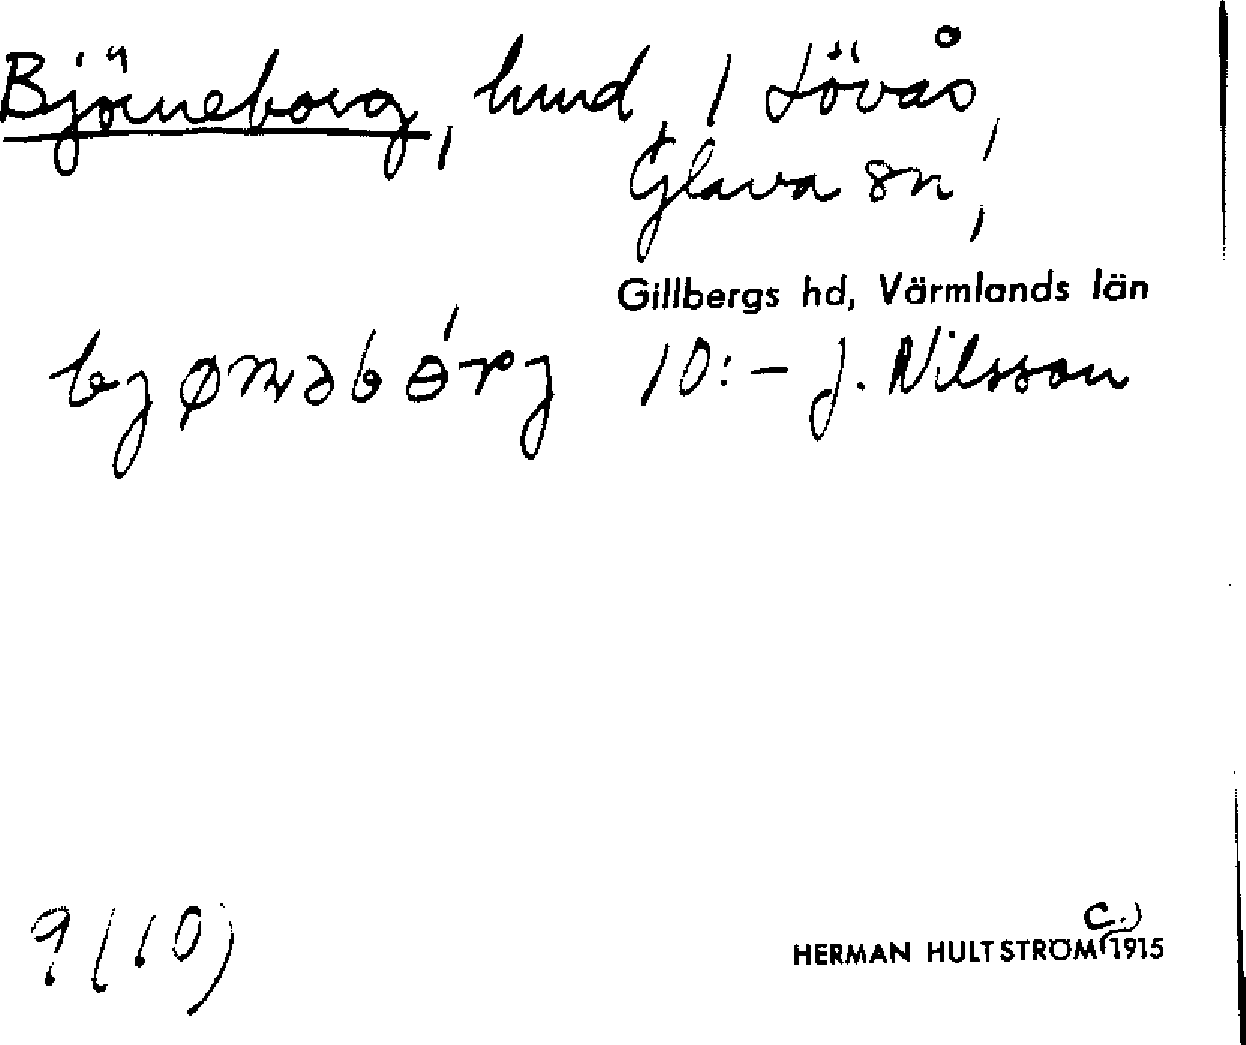 Björneborg, lund, 1 Lövås,
Glava sn,
Gillbergs hd, Värmlands län
10:- J. Nilsson
9 (10)
HERMAN HULTSTRÖM (c.) 1915